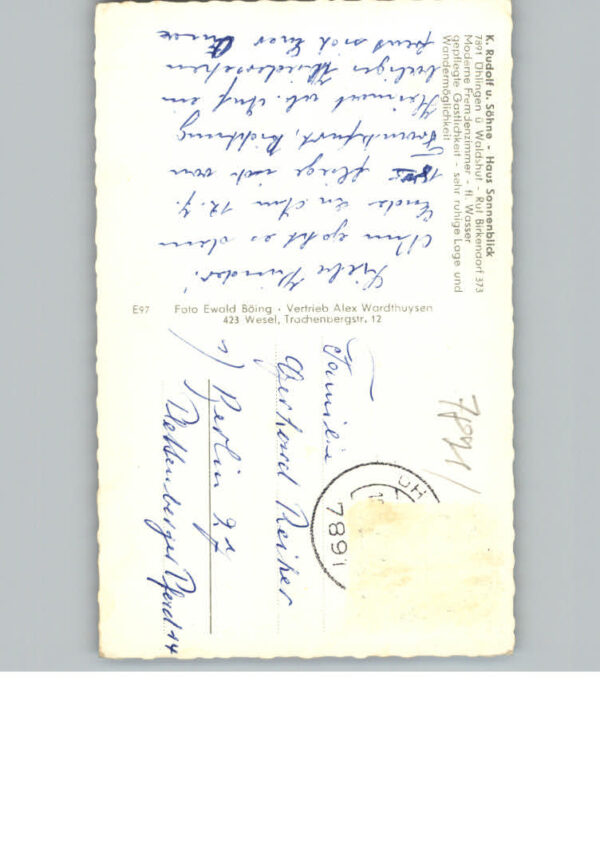 K. Rudolf u. Söhne - Haus Sonnenblick
7891 Ühlingen ü Waldshut - Ruf Birkendorf 373
Moderne Fremdenzimmer - fl. Wasser
gepflegte Gastlichkeit - sehr ruhige Lage und
Wandermöglichkeit
Liebe Kinder!
Nun geht es dem
Ende zu. Am 12.9.
18 fliege ich von
Frankfurt, Richtung
Heimat ab. Auf ein
baldiges Wiedersehen
freut sich Eure
E97 Foto Ewald Böing · Vertrieb Alex Wardthuysen
423 Wesel, Trachenbergstr. 12
7891
ÜH
7891
Familie
Gerhard Reiher
1) Berlin 27
14